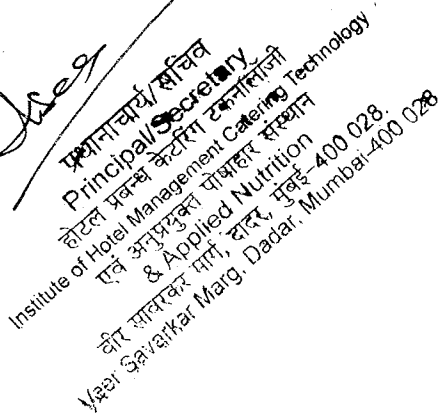 प्रधानाचार्य/सचिव
Principal/Secretary
होटल प्रबन्ध केटरिंग टक्नॉलॉजी
Institute of Hotel Management Catering Technology
एवं अनुप्रयुक्त पोषाहार संस्थान
& Applied Nutrition
वीर सावरकर मार्ग, दादर, मुंबई-400 028.
Veer Savarkar Marg, Dadar, Mumbai-400 028